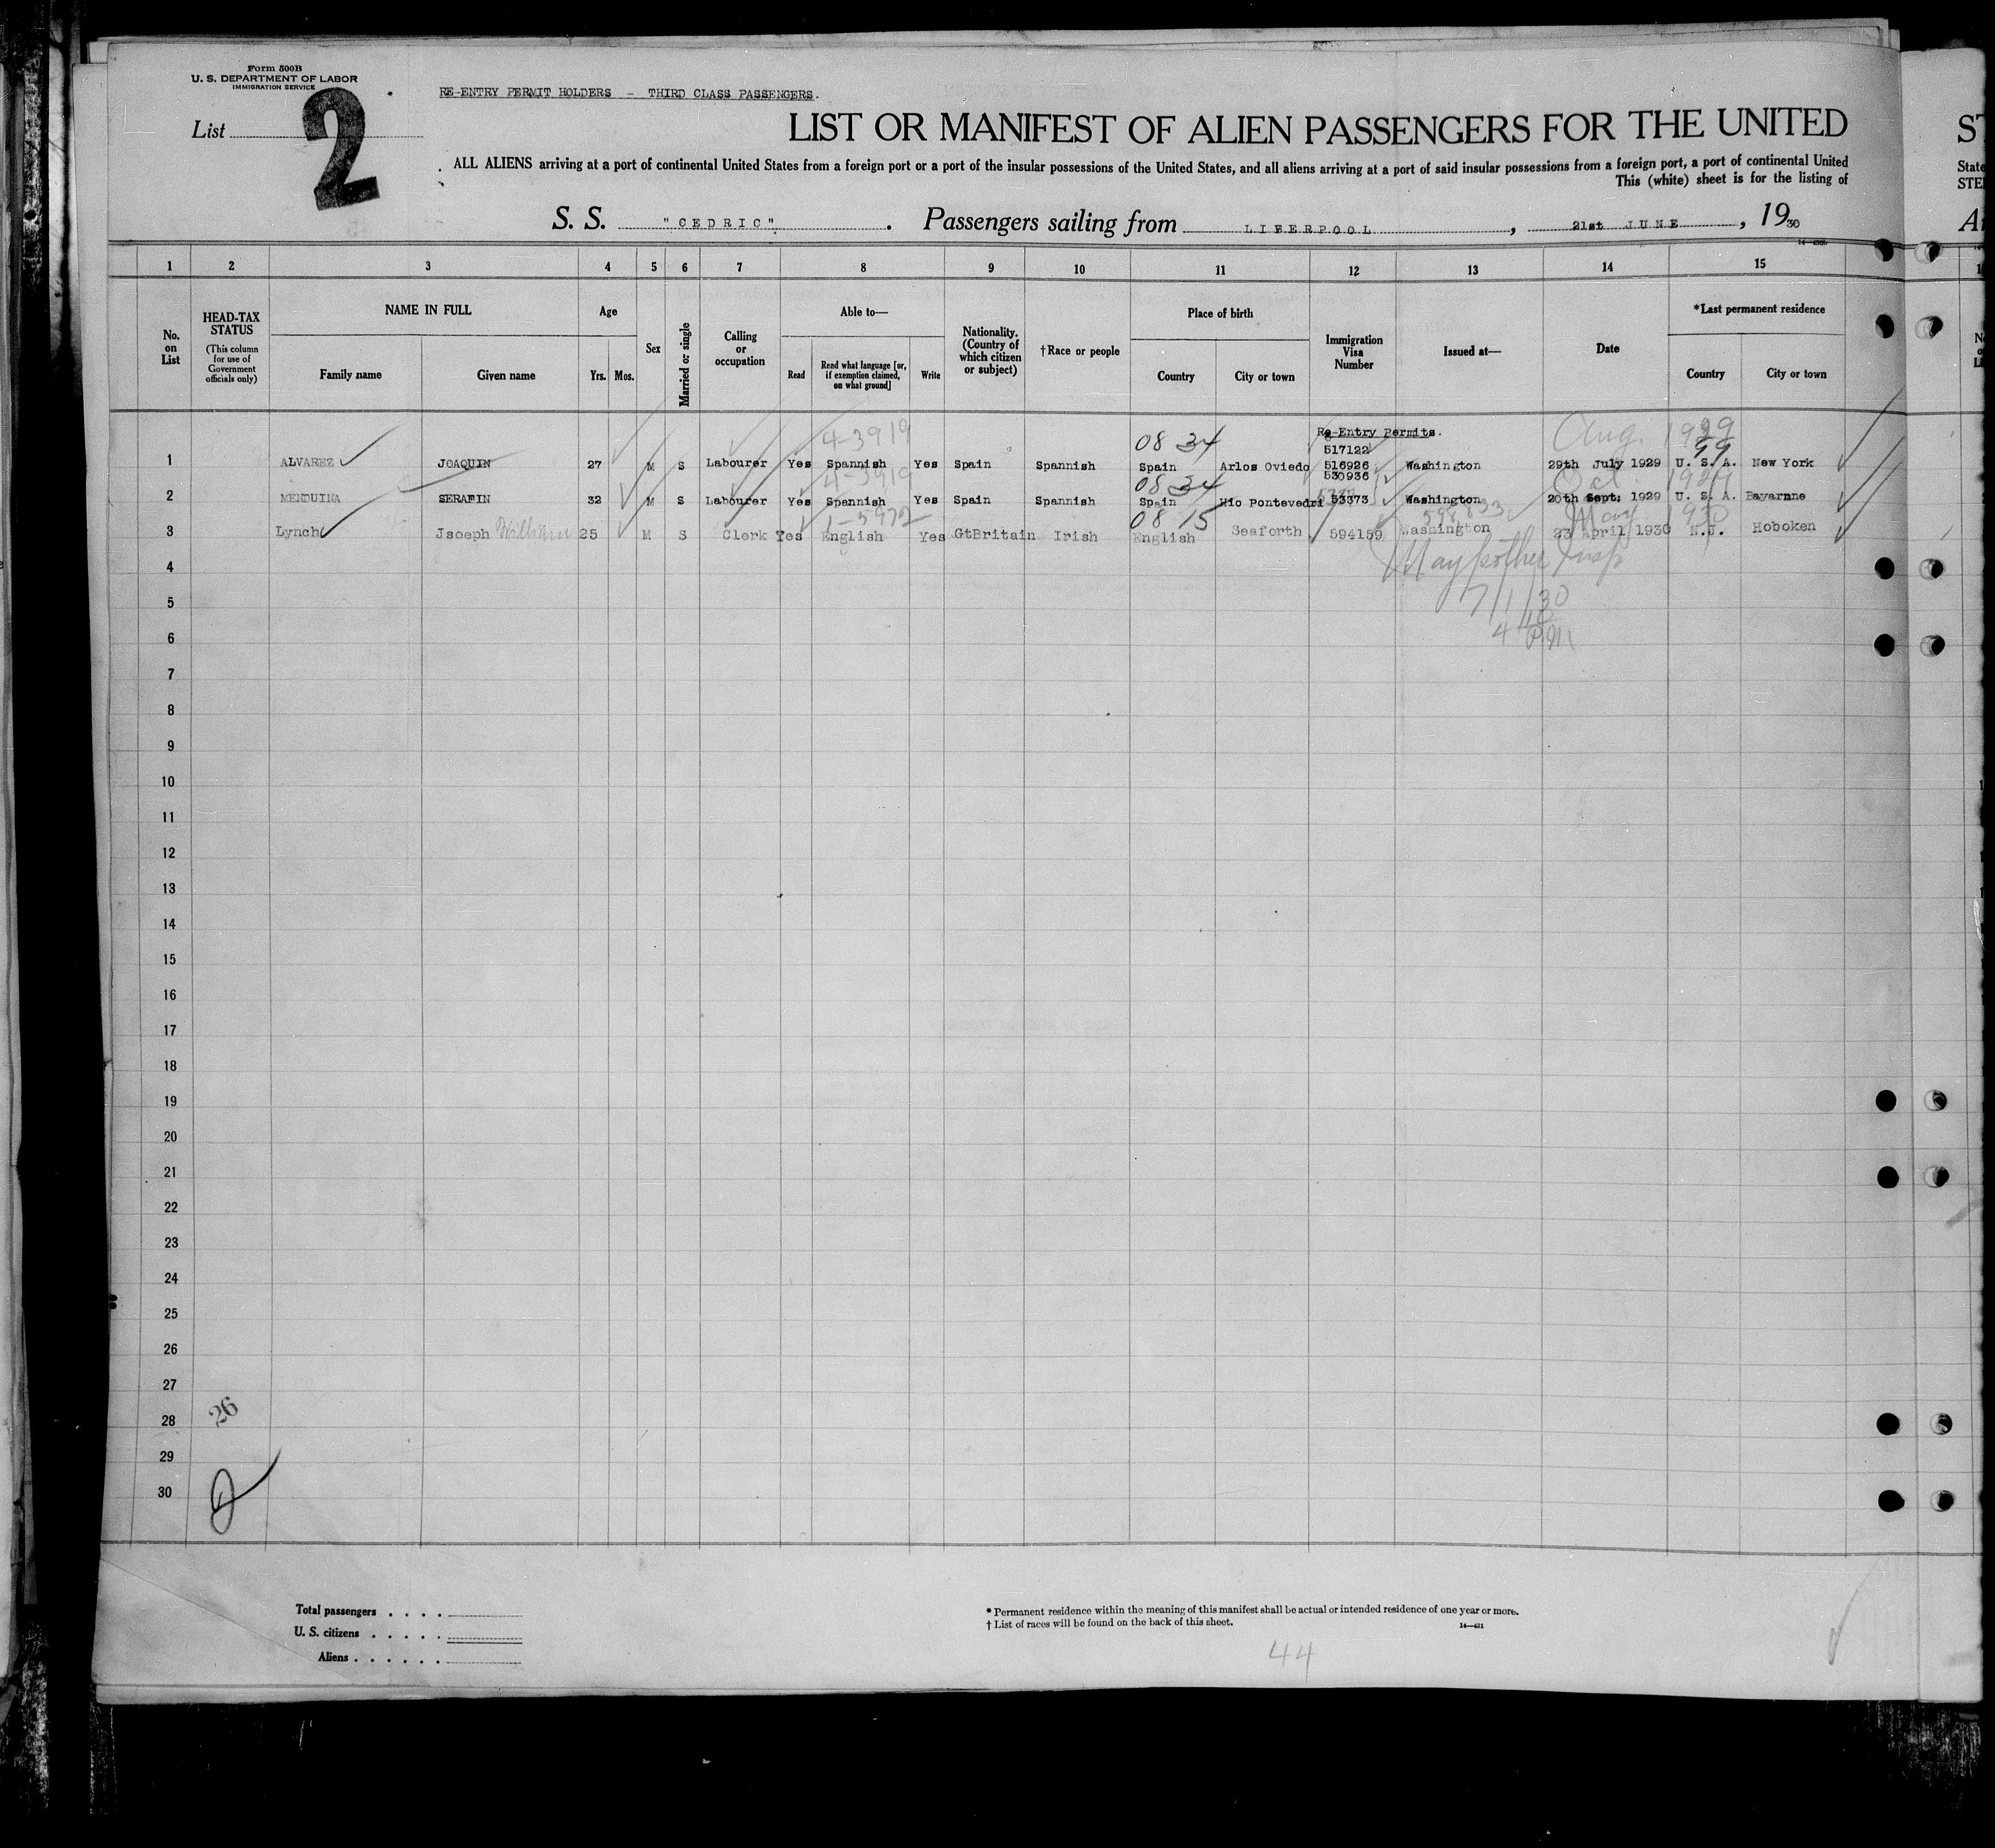 Form 500B
U. S. DEPARTMENT OF LABOR
IMMIGRATION SERVICE
List 2
RE-ENTRY PERMIT HOLDERS - THIRD CLASS PASSENGERS.
LIST OR MANIFEST OF ALIEN PASSENGERS FOR THE UNITED
ALL ALIENS arriving at a port of continental United States from a foreign port or a port of the insular possessions of the United States, and all aliens arriving at a port of said insular possessions from a foreign port, a port of continental United
This (white) sheet is for the listing of
S. S. "CEDRIC". Passengers sailing from LIVERPOOL, 21st JUNE, 1930
1 2 3 4 5 6 7 8 9 10 11 12 13 14 15
No. on List
HEAD-TAX STATUS
(This column for use of Government officials only)
NAME IN FULL
Family name Given name
Age
Yrs. Mos.
Sex
Married or single
Calling or occupation
Able to—
Read
Read what language [or, if exemption claimed, on what ground]
Write
Nationality. (Country of which citizen or subject)
†Race or people
Place of birth
Country City or town
Immigration Visa Number
Issued at—
Date
*Last permanent residence
Country City or town
4-3919 08 34 Re-Entry Permits. Aug. 1929
517122 99
1 ALVAREZ JOAQUIN 27 M S Labourer Yes Spannish Yes Spain Spannish Spain Arlos Oviedo 516926 Washington 29th July 1929 U. S. A. New York
530936
4-3919 08 34 Oct. 1929
2 MENDUINA SERAFIN 32 M S Labourer Yes Spannish Yes Spain Spannish Spain Hio Pontevedri 53373 Washington 20th Sept: 1929 U. S. A. Bayarnne
1-5972 08 15 May 1930
3 Lynch Jsoeph William 25 M S Clerk Yes English Yes GtBritain Irish English Seaforth 594159 Washington 23 April 1930 N.J. Hoboken
4
Insp
5
7/1/30
6
7
8
9
10
11
12
13
14
15
16
17
18
19
20
21
22
23
24
25
26
27
28 26
29
30
Total passengers . . . .
U. S. citizens . . . . .
Aliens . . . . . .
* Permanent residence within the meaning of this manifest shall be actual or intended residence of one year or more.
† List of races will be found on the back of this sheet.
14—431
44